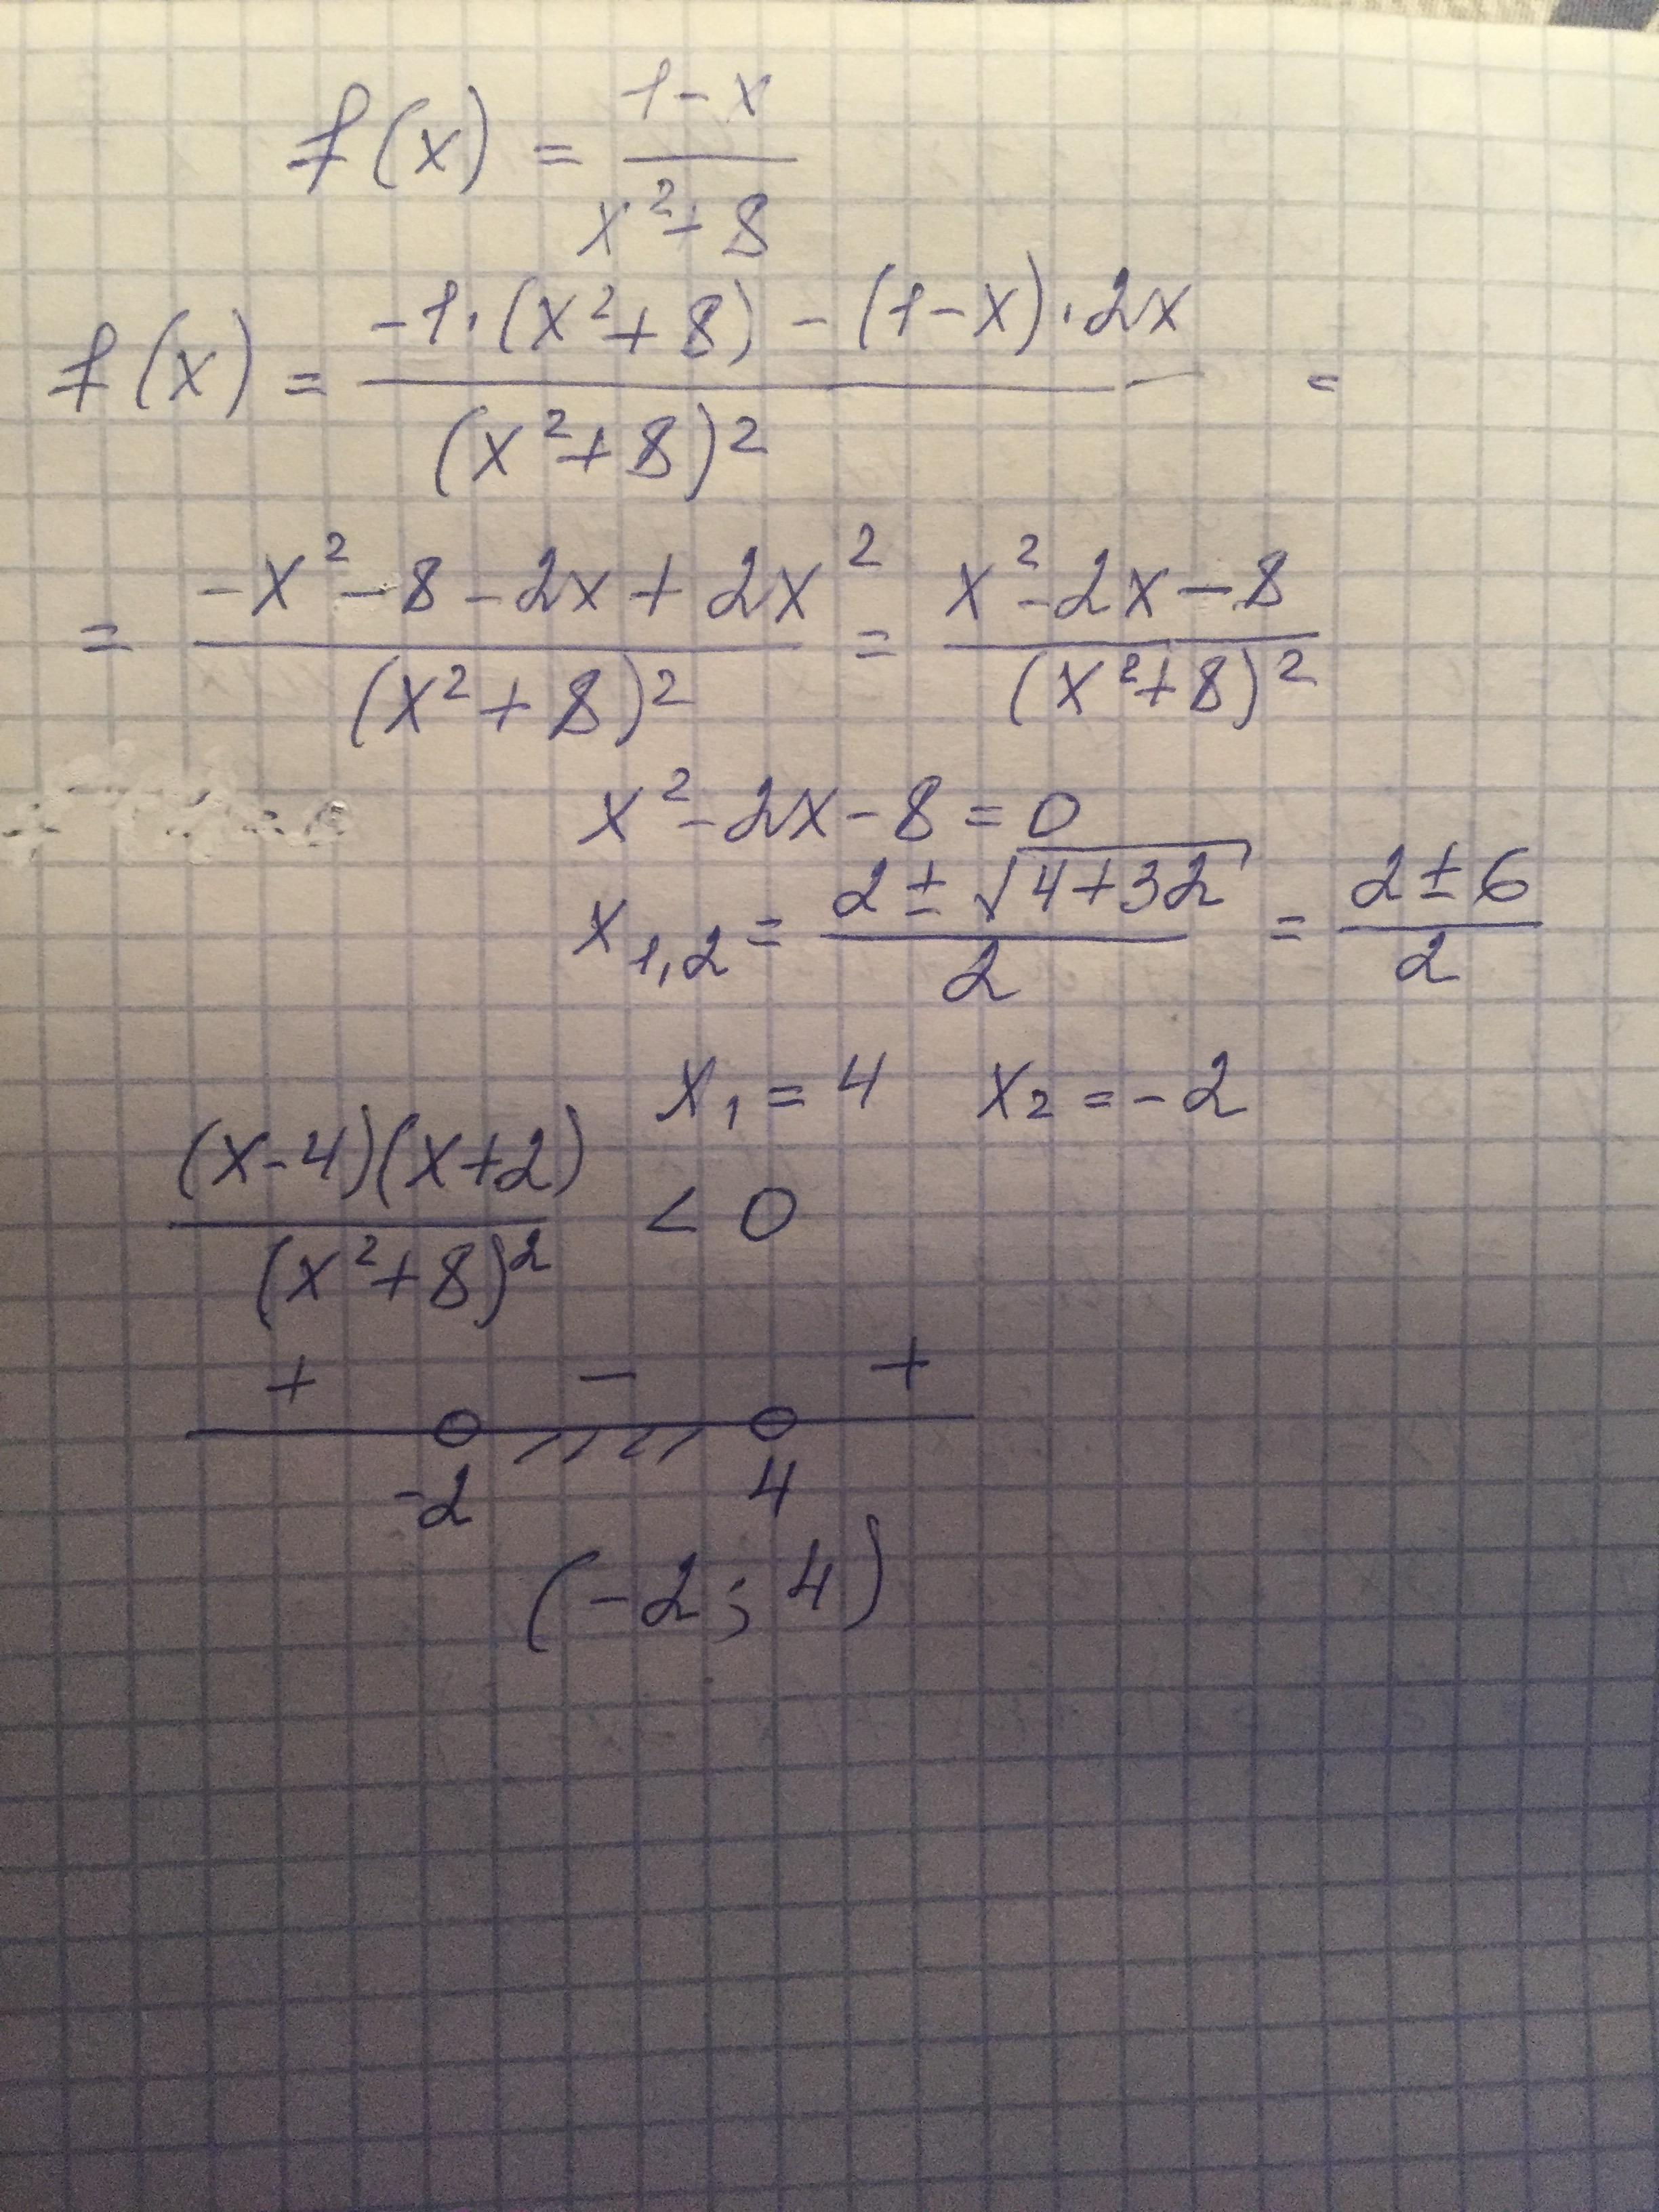 f(x) = (1-x)/(x²+8)
f(x) = (-1·(x²+8) - (1-x)·2x)/((x²+8)²) =
= (-x²-8-2x+2x²)/((x²+8)²) = (x²-2x-8)/((x²+8)²)
x²-2x-8=0
x₁,₂ = (2±√(4+32))/2 = (2±6)/2
x₁=4 x₂=-2
((x-4)(x+2))/((x²+8)²) < 0
+ - +
-2 4
(-2; 4)